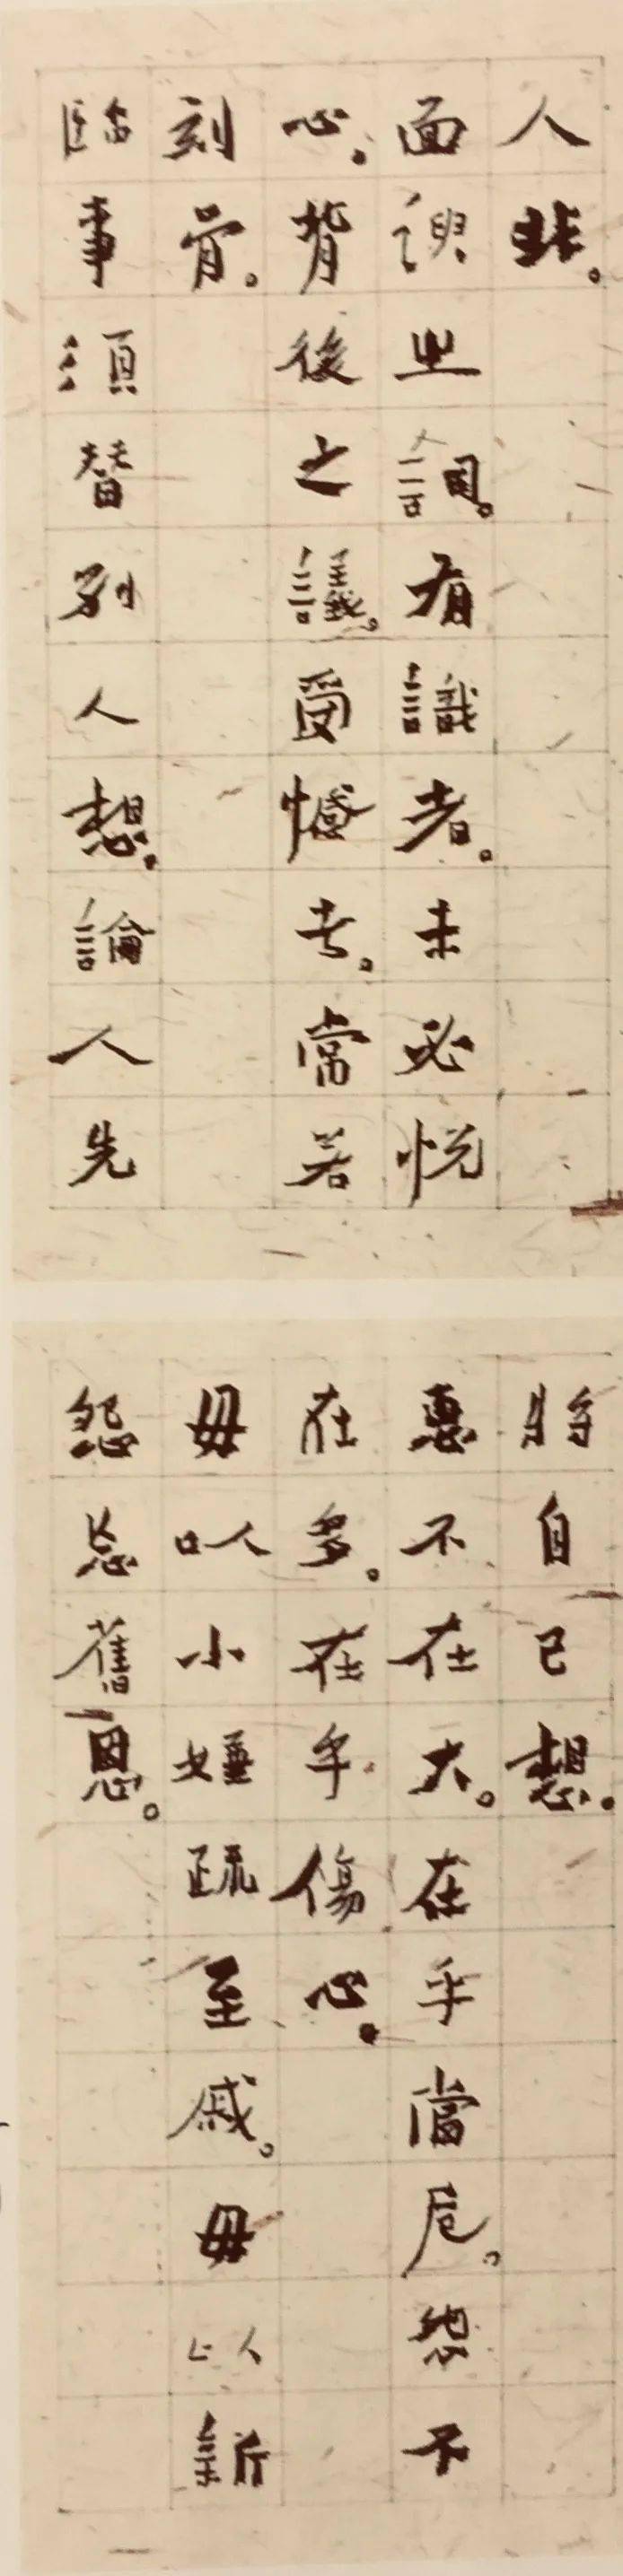 人非。
面諛之詞。有識者。未必悅
心。背後之議。受憾者。常若
刻骨。
臨事須替別人想。論人先
將自己想。
惠不在大。在乎當厄。怨不
在多。在乎傷心。
毋以小嫌疏至戚。毋以新
怨忘舊恩。